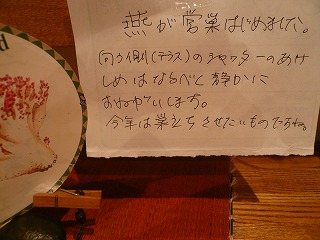 燕が営巣はじめました。
向う側(テラス)のシャッターのあけ
しめはなるべく静かに
おねがいします。
今年は巣立ちさせたいものですね。